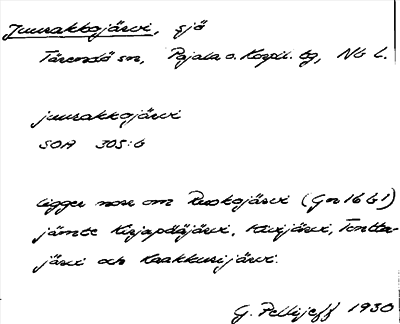 Juurakkojärvi, sjö
Tärendö sn, Pajala o. Korpil. tg, Nb L.
juurakkojärvi
SOA 305:6
ligger norr om Ruokojärvi (Gr 16 b 1)
jämte Kirjapääjärvi, Kivijärvi, Tontta-
järvi och Kaakkurijärvi.
G. Pellijeff 1930